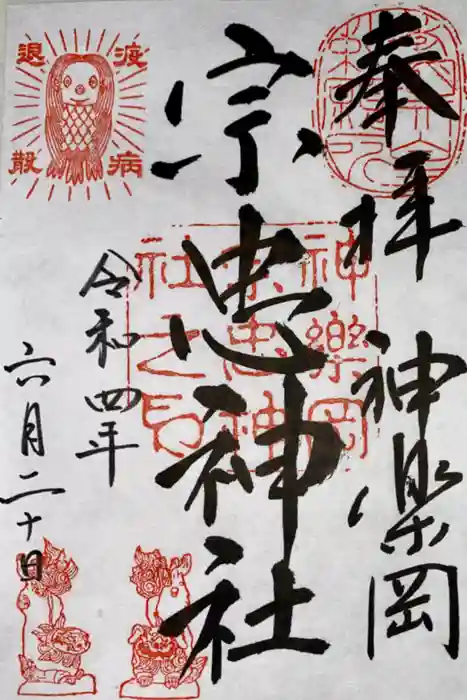 奉拝
神楽岡
宗忠神社
令和四年
六月二十日
疫病
退散
神樂岡
宗忠神
社之印